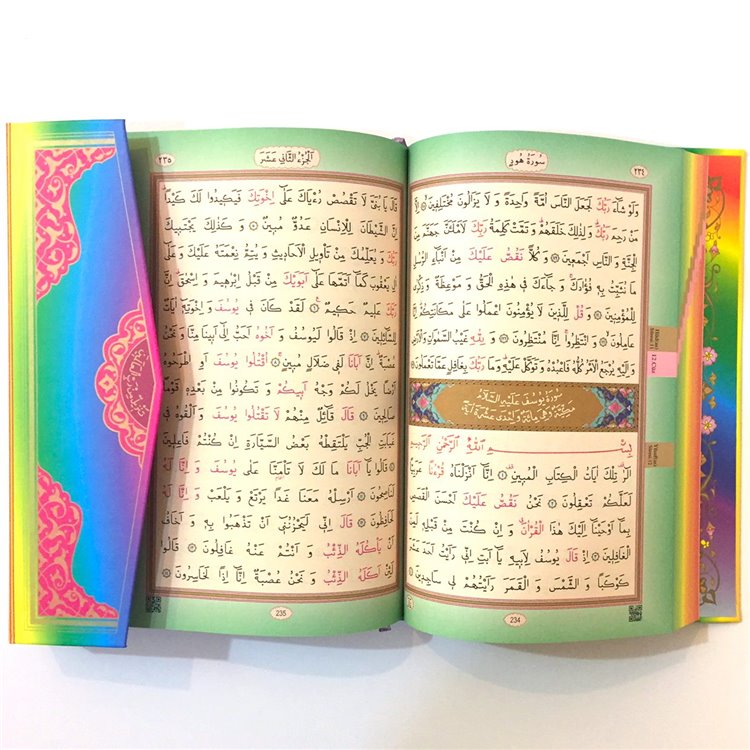 سُورَةُ هُودٍ ٢٣٤
وَلَوْ شَاءَ رَبُّكَ لَجَعَلَ النَّاسَ اُمَّةً وَاحِدَةً وَ لَا يَزَالُونَ مُخْتَلِفِينَ
مَنْ رَحِمَ رَبُّكَ وَلِذٰلِكَ خَلَقَهُمْ وَ تَمَّتْ كَلِمَةُ رَبِّكَ لَاَمْلَئَنَّ جَهَنَّمَ مِنَ
الْجِنَّةِ وَ النَّاسِ اَجْمَعِينَ وَ كُلًّا نَقُصُّ عَلَيْكَ مِنْ اَنْبَاءِ الرُّسُلِ
مَا نُثَبِّتُ بِهِ فُؤَادَكَ وَ جَاءَكَ فِي هٰذِهِ الْحَقُّ وَ مَوْعِظَةٌ وَ ذِكْرٰى
لِلْمُؤْمِنِينَ وَ قُلْ لِلَّذِينَ لَا يُؤْمِنُونَ اعْمَلُوا عَلٰى مَكَانَتِكُمْ اِنَّا
عَامِلُونَ وَ انْتَظِرُوا اِنَّا مُنْتَظِرُونَ وَ لِلّٰهِ غَيْبُ السَّمٰوَاتِ وَالْاَرْضِ
وَ اِلَيْهِ يُرْجَعُ الْاَمْرُ كُلُّهُ فَاعْبُدْهُ وَ تَوَكَّلْ عَلَيْهِ وَمَا رَبُّكَ بِغَافِلٍ عَمَّا تَعْمَلُونَ
سُورَةُ يُوسُفَ عَلَيْهِ السَّلَامُ
مَكِّيَّةٌ وَهِيَ مِائَةٌ وَاِحْدٰى عَشْرَةَ اٰيَةً
بِسْمِ اللّٰهِ الرَّحْمٰنِ الرَّحِيمِ
الٓرٰ تِلْكَ اٰيَاتُ الْكِتَابِ الْمُبِينِ اِنَّا اَنْزَلْنَاهُ قُرْءٰنًا عَرَبِيًّا
لَعَلَّكُمْ تَعْقِلُونَ نَحْنُ نَقُصُّ عَلَيْكَ اَحْسَنَ الْقَصَصِ
بِمَا اَوْحَيْنَا اِلَيْكَ هٰذَا الْقُرْاٰنَ وَ اِنْ كُنْتَ مِنْ قَبْلِهِ لَمِنَ
الْغَافِلِينَ اِذْ قَالَ يُوسُفُ لِاَبِيهِ يَا اَبَتِ اِنِّي رَاَيْتُ اَحَدَ عَشَرَ
كَوْكَبًا وَ الشَّمْسَ وَ الْقَمَرَ رَاَيْتُهُمْ لِي سَاجِدِينَ
234
12.Cüz
اَلْجُزْءُ الثَّانِي عَشَرَ ٢٣٥
قَالَ يَا بُنَيَّ لَا تَقْصُصْ رُءْيَاكَ عَلٰى اِخْوَتِكَ فَيَكِيدُوا لَكَ كَيْدًا
اِنَّ الشَّيْطَانَ لِلْاِنْسَانِ عَدُوٌّ مُبِينٌ وَ كَذٰلِكَ يَجْتَبِيكَ
رَبُّكَ وَ يُعَلِّمُكَ مِنْ تَأْوِيلِ الْاَحَادِيثِ وَ يُتِمُّ نِعْمَتَهُ عَلَيْكَ وَ عَلٰى
اٰلِ يَعْقُوبَ كَمَا اَتَمَّهَا عَلٰى اَبَوَيْكَ مِنْ قَبْلُ اِبْرٰهِيمَ وَ اِسْحٰقَ اِنَّ
رَبَّكَ عَلِيمٌ حَكِيمٌ لَقَدْ كَانَ فِي يُوسُفَ وَ اِخْوَتِهِ اٰيَاتٌ
لِلسَّائِلِينَ اِذْ قَالُوا لَيُوسُفُ وَ اَخُوهُ اَحَبُّ اِلٰى اَبِينَا مِنَّا وَ نَحْنُ
عُصْبَةٌ اِنَّ اَبَانَا لَفِي ضَلَالٍ مُبِينٍ اُقْتُلُوا يُوسُفَ اَوِ اطْرَحُوهُ
اَرْضًا يَخْلُ لَكُمْ وَجْهُ اَبِيكُمْ وَ تَكُونُوا مِنْ بَعْدِهِ قَوْمًا
صَالِحِينَ قَالَ قَائِلٌ مِنْهُمْ لَا تَقْتُلُوا يُوسُفَ وَ اَلْقُوهُ فِي
غَيَابَتِ الْجُبِّ يَلْتَقِطْهُ بَعْضُ السَّيَّارَةِ اِنْ كُنْتُمْ فَاعِلِينَ
قَالُوا يَا اَبَانَا مَا لَكَ لَا تَأْمَنَّا عَلٰى يُوسُفَ وَ اِنَّا لَهُ
لَنَاصِحُونَ اَرْسِلْهُ مَعَنَا غَدًا يَرْتَعْ وَ يَلْعَبْ وَ اِنَّا لَهُ
لَحَافِظُونَ قَالَ اِنِّي لَيَحْزُنُنِي اَنْ تَذْهَبُوا بِهِ وَ اَخَافُ
اَنْ يَأْكُلَهُ الذِّئْبُ وَ اَنْتُمْ عَنْهُ غَافِلُونَ قَالُوا
لَئِنْ اَكَلَهُ الذِّئْبُ وَ نَحْنُ عُصْبَةٌ اِنَّا اِذًا لَخَاسِرُونَ
235